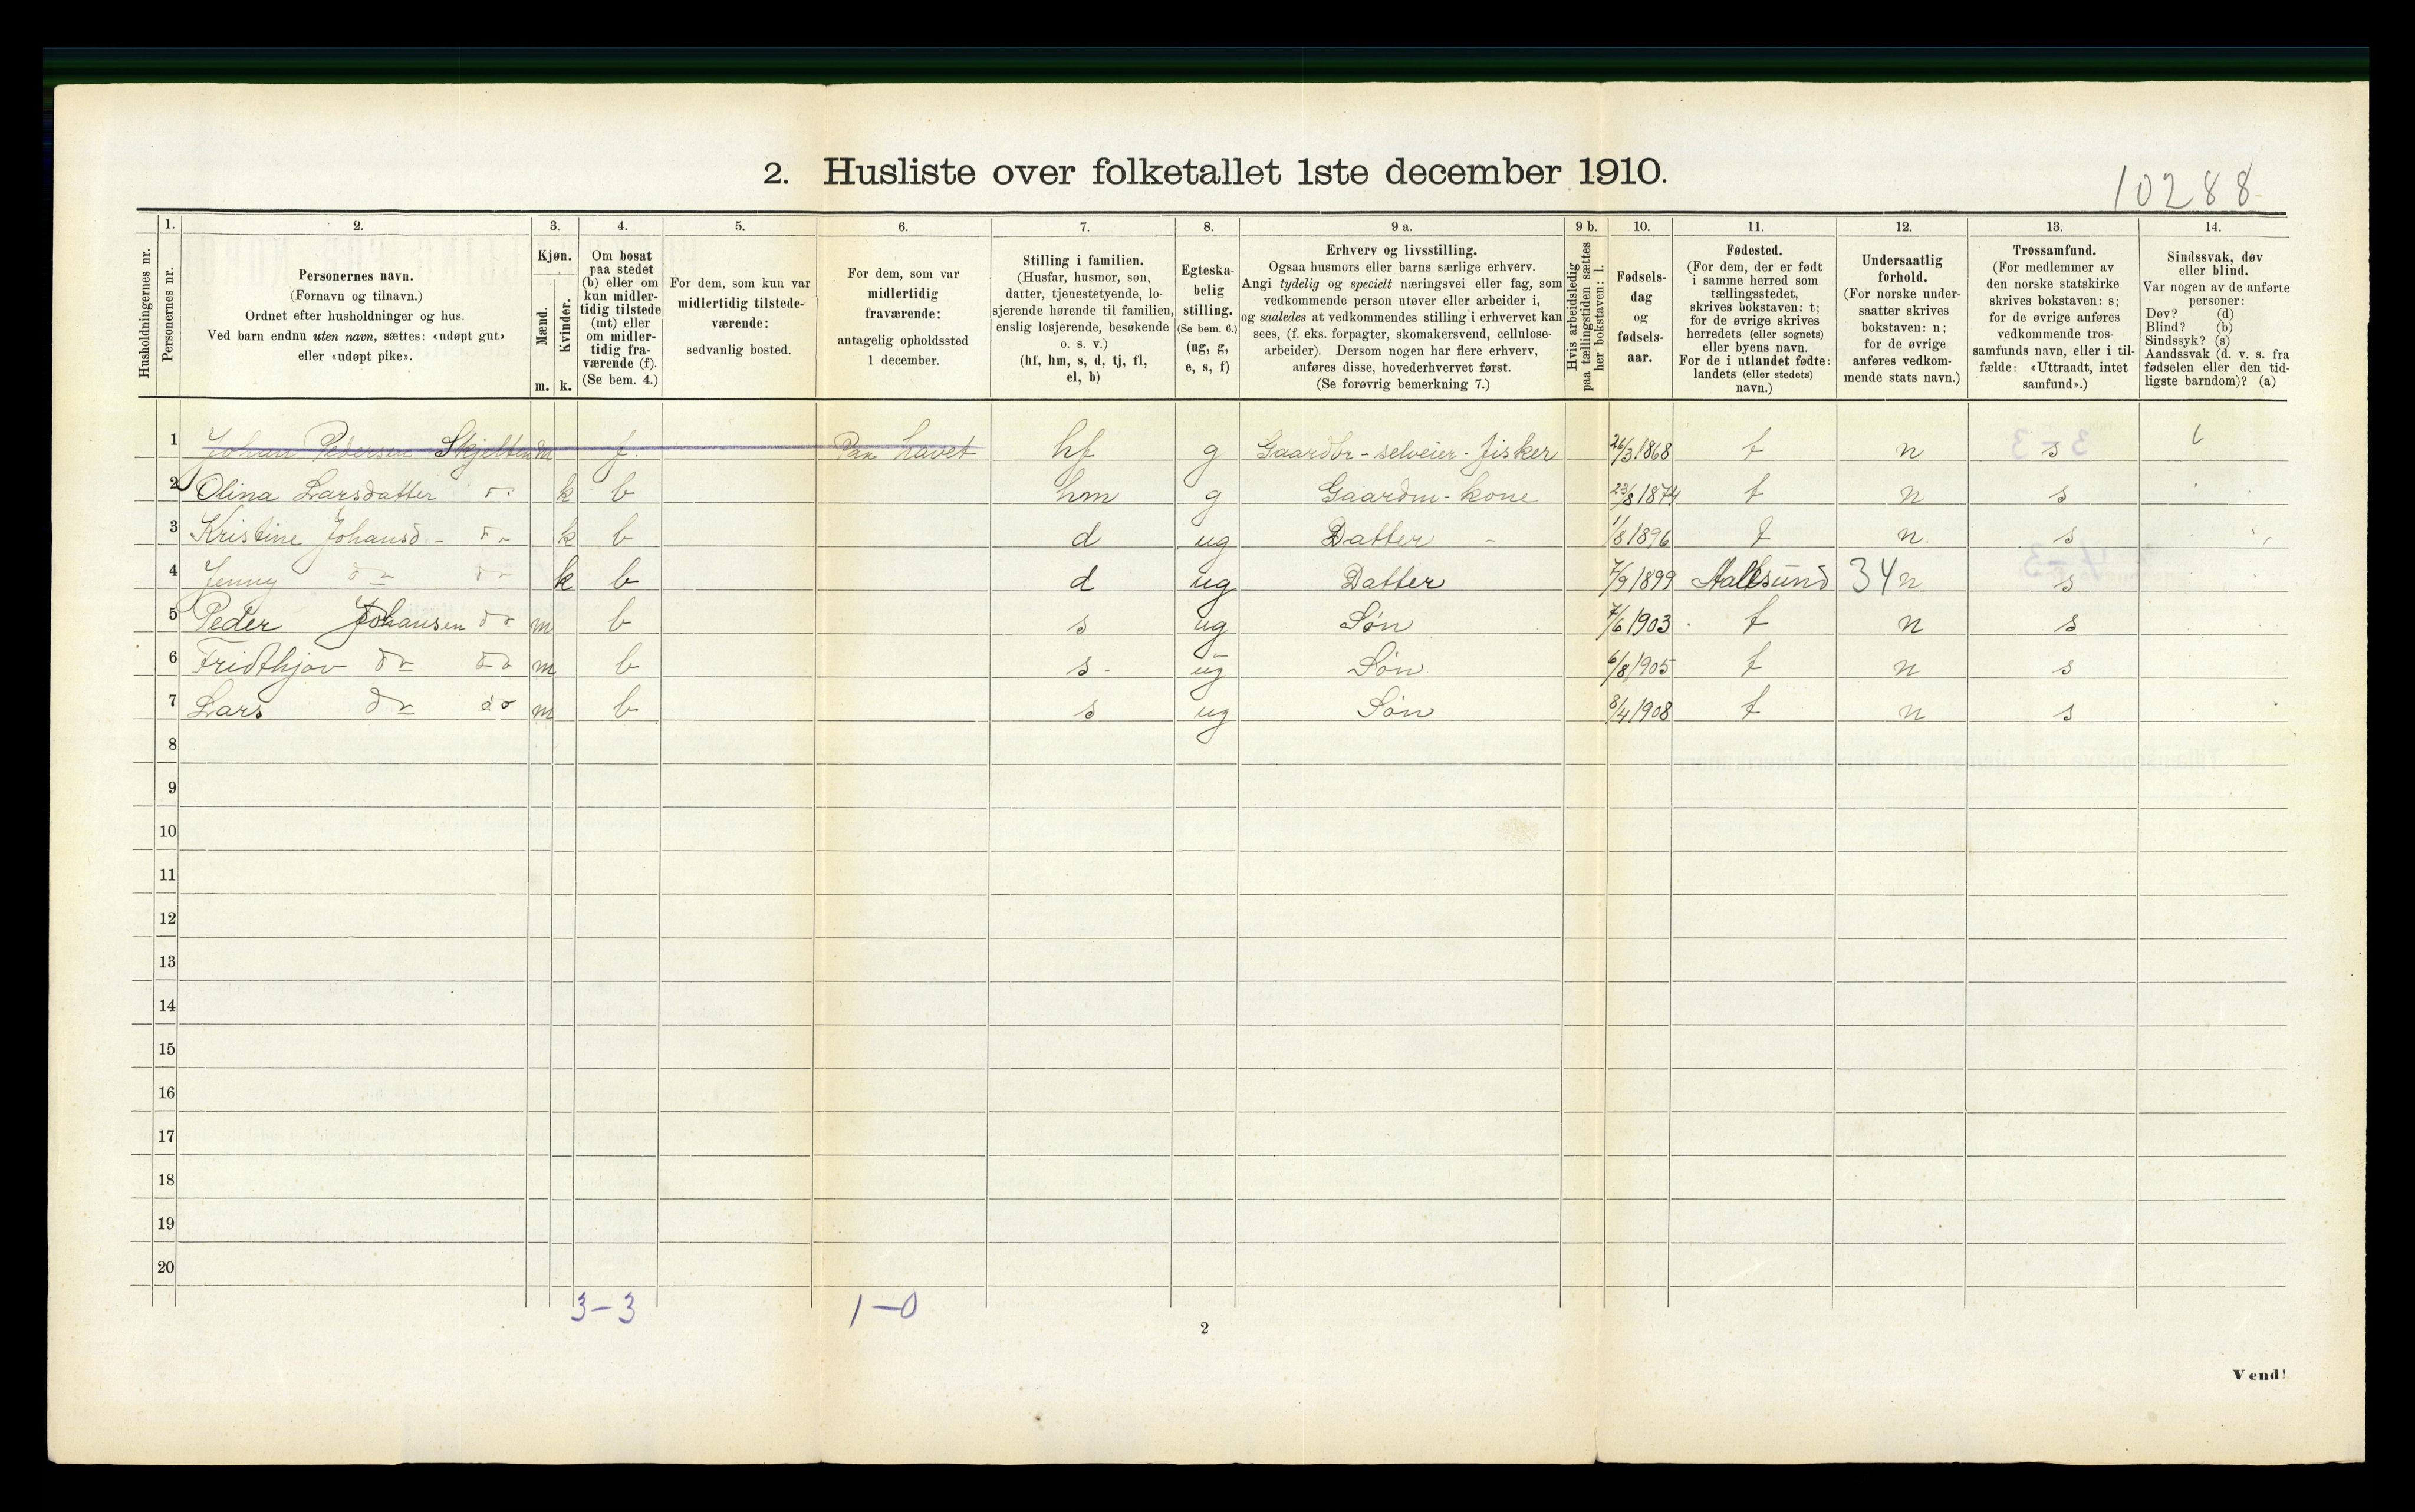 2. Husliste over folketallet 1ste december 1910.
10288
Husholdningernes nr.
1.
Personernes nr.
2.
Personernes navn.
(Fornavn og tilnavn.)
Ordnet efter husholdninger og hus.
Ved barn endnu uten navn, sættes: «udøpt gut»
eller «udøpt pike».
3.
Kjøn.
Mænd.
Kvinder.
m. k.
4.
Om bosat
paa stedet
(b) eller om
kun midler-
tidig tilstede
(mt) eller
om midler-
tidig fra-
værende (f).
(Se bem. 4.)
5.
For dem, som kun var
midlertidig tilstede-
værende:
sedvanlig bosted.
6.
For dem, som var
midlertidig
fraværende:
antagelig opholdssted
1 december.
7.
Stilling i familien.
(Husfar, husmor, søn,
datter, tjenestetyende, lo-
sjerende hørende til familien,
enslig losjerende, besøkende
o. s. v.)
(hf, hm, s, d, tj, fl,
el, b)
8.
Egteska-
belig
stilling.
(Se bem. 6.)
(ug, g,
e, s, f)
9 a.
Erhverv og livsstilling.
Ogsaa husmors eller barns særlige erhverv.
Angi tydelig og specielt næringsvei eller fag, som
vedkommende person utøver eller arbeider i,
og saaledes at vedkommendes stilling i erhvervet kan
sees, (f. eks. forpagter, skomakersvend, cellulose-
arbeider). Dersom nogen har flere erhverv,
anføres disse, hovederhvervet først.
(Se forøvrig bemerkning 7.)
9 b.
Hvis arbeidsledig
paa tællingstiden sættes
her bokstaven: l.
10.
Fødsels-
dag
og
fødsels-
aar.
11.
Fødested.
(For dem, der er født
i samme herred som
tællingsstedet,
skrives bokstaven: t;
for de øvrige skrives
herredets (eller sognets)
eller byens navn.
For de i utlandet fødte:
landets (eller stedets)
navn.)
12.
Undersaatlig
forhold.
(For norske under-
saatter skrives
bokstaven: n;
for de øvrige
anføres vedkom-
mende stats navn.)
13.
Trossamfund.
(For medlemmer av
den norske statskirke
skrives bokstaven: s;
for de øvrige anføres
vedkommende tros-
samfunds navn, eller i til-
fælde: «Uttraadt, intet
samfund».)
14.
Sindssvak, døv
eller blind.
Var nogen av de anførte
personer:
Døv? (d)
Blind? (b)
Sindssyk? (s)
Aandssvak (d. v. s. fra
fødselen eller den tid-
ligste barndom)? (a)
1 Johan Pedersen m f Paa havet hf g Gaardbr-selveier-fisker 26/3 1868 t n s
2 Olina Larsdatter k b hm g Gaardm-kone 23/8 1874 t n s
3 Kristine Johansd - do k b d ug Datter - 1/8 1896 t n. s
4 Jenny do do k b d ug Datter 7/9 1899 34 n s
5 Peder Johansen do m b s ug Søn 7/6 1903 t n s
6 Fridthjov do do m b s - ug Søn 6/8 1905 t n s
7 Lars do do m b s ug Søn 8/4 1908 t n s
8
9
10
11
12
13
14
15
16
17
18
19
20
3-3 1-0
2
Vend!